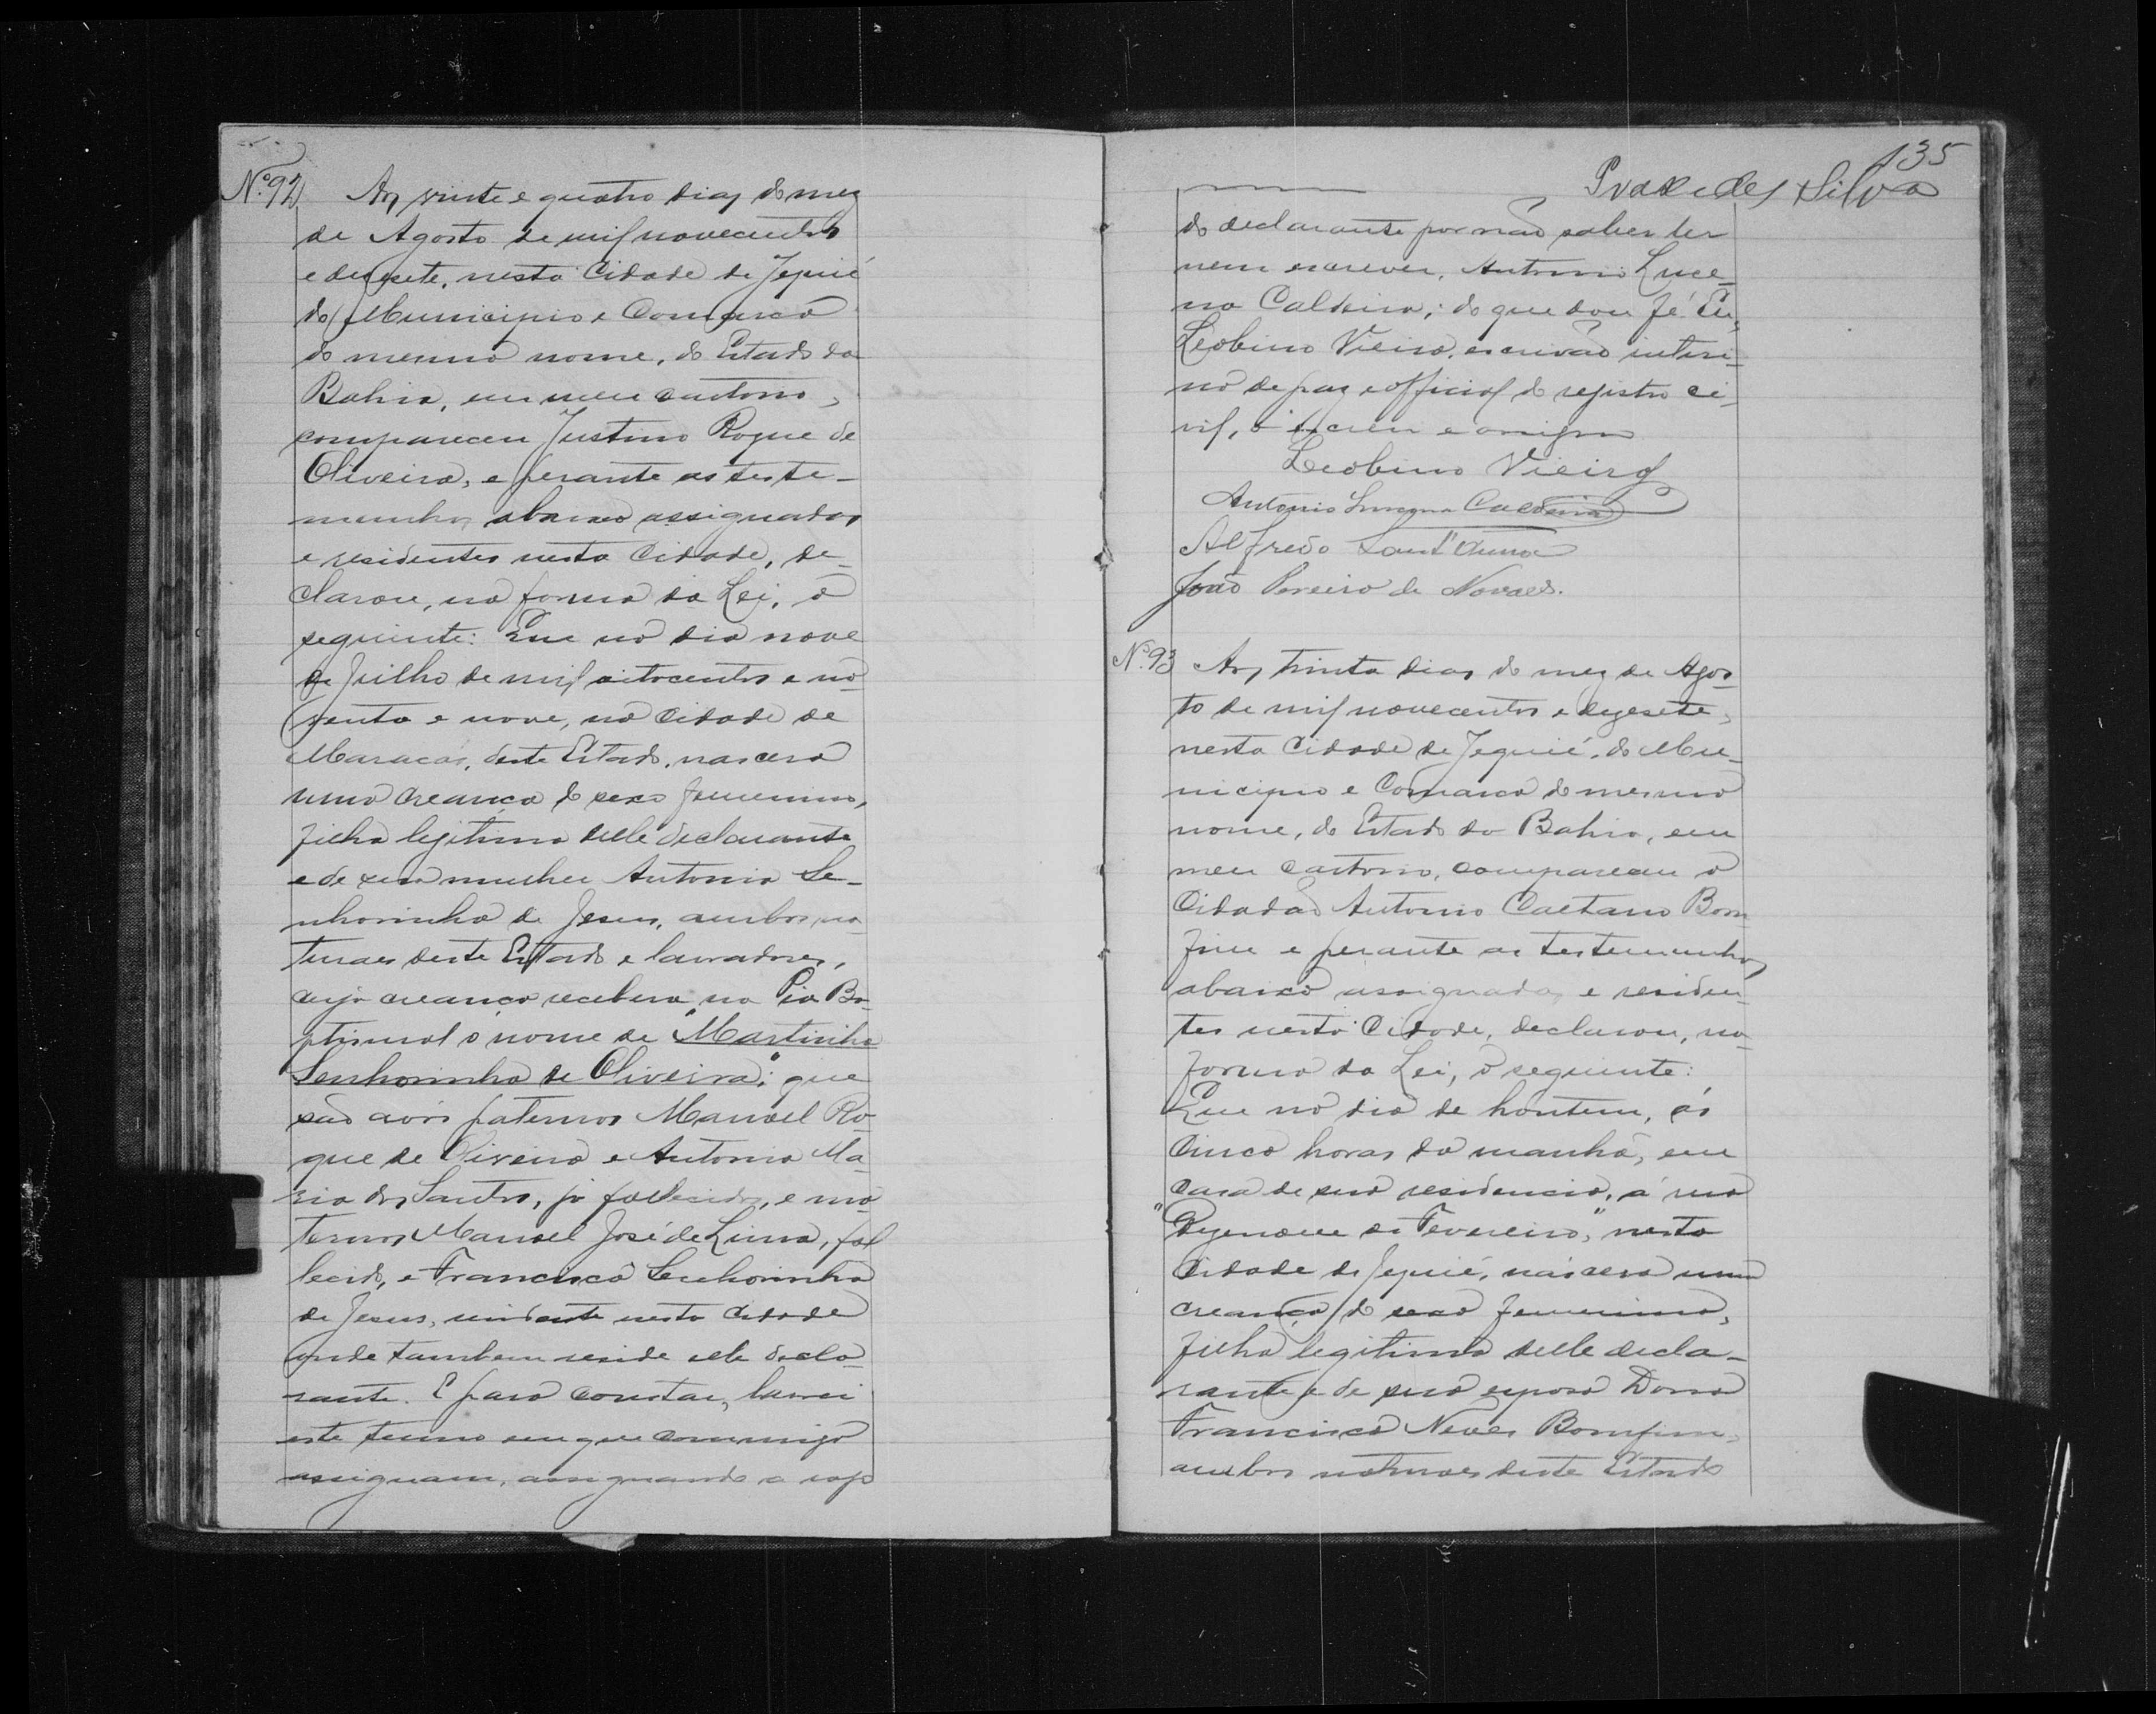 Nº. 92
Aos vinte e quatro dias do mez
de Agosto de mil novecentos
e dezesete, nesta Cidade de Jequié
do Municipio e Comarca
do mesmo nome, do Estado da
Bahia, em meu cartorio,
compareceu Justino Roque de
Oliveira, e perante as teste-
munhas abaixo assignadas
e residentes nesta Cidade, de-
clarou, na forma da Lei, o
seguinte: Que no dia nove
de Julho de mil oitocentos e no-
venta e nove, na Cidade de
Maracás, deste Estado, nascera
uma creança do sexo femenino,
filha legitima delle declarante
e de sua mulher Antonia Se-
nhorinha de Jesus, ambos na
turaes deste Estado e lavradores,
cuja creança recebera na Pia Ba-
ptismal o nome de "Martinha
Senhorinha de Oliveira"; que
são avós paternos Manoel Ro-
que de Oliveira e Antonia Ma-
ria dos Santos, já fallecidos, e ma-
ternos Manoel José de Lima, fal
lecido, e Francisca Senhorinha
de Jesus, residente nesta Cidade
onde tambem reside elle decla-
rante. E para constar, lavrei
este termo em que commigo
assignam, assignando a rogo
135
Praxedes Silva
do declarante por não saber ler
nem escrever, Antonio Luce-
na Caldeira; do que dou fé. Eu,
Leobino Vieira, escrivão interi-
no de paz e official do registro ci-
vil, o escrevi e assigno
Leobino Vieira
Antonio Lucena Caldeira
Alfredo Sant'Anna
João Pereira de Novaes.
Nº. 93
Aos trinta dias do mez de Agos-
to de mil novecentos e dezesete,
nesta Cidade de Jequié, do Mu-
nicipio e Comarca do mesmo
nome, do Estado da Bahia, em
meu cartorio, compareceu o
Cidadão Antonio Caetano Bom-
fim e perante as testemunhas
abaixo assignadas e residen-
tes nesta Cidade, declarou, na
forma da Lei, o seguinte:
Que no dia de hontem, ás
cinco horas da manhã, em
casa de sua residencia, á rua
"Dezenove de Fevereiro", nesta
Cidade de Jequié, nascera uma
creança do sexo femenino,
filha legitima delle decla-
rante e de sua esposa Dona
Francisca Neves Bomfim,
ambos naturaes deste Estado